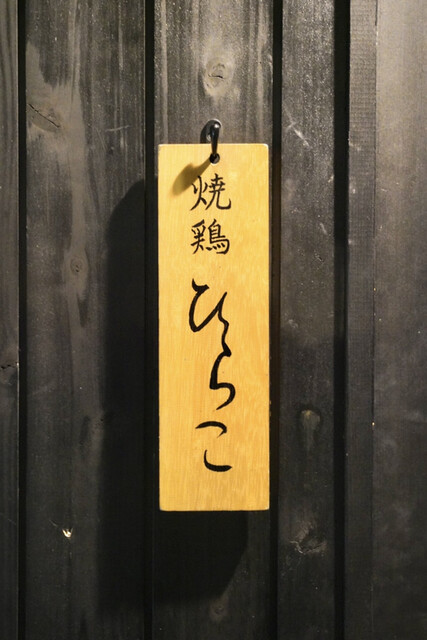 焼鶏
ひらこ